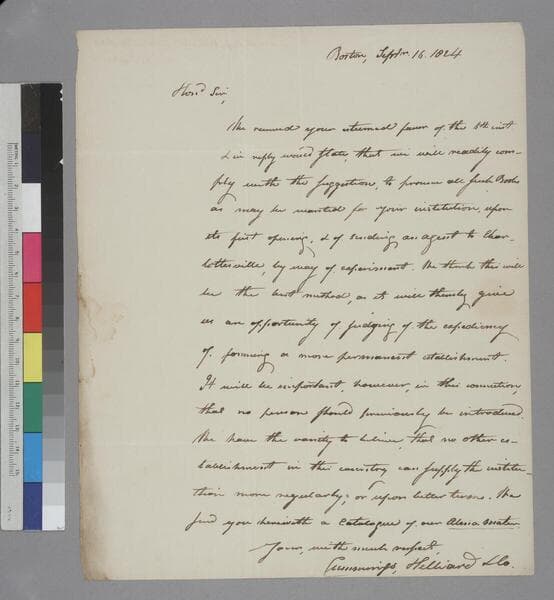 Boston, Septr. 16. 1824
Hond Sir,
We received your esteemed favor of the 5th inst
& in reply would state, that we will readily com-
ply with the suggestion, to procure all such Books
as may be wanted for your institution, upon
its first opening, & of sending an agent to Char-
lottesville, by way of experiment. We think this will
be the best method, as it will thereby give
us an opportunity of judging of the expediency
of forming a more permanent establishment.
It will be important, however, in this connection,
that no person should previously be introduced.
We have the vanity to believe, that no other es-
tablishment in the country can supply the institu-
tion more regularly, or upon better terms. We
send you herewith a Catalogue of our Alma mater.
Yours, with much respect,
Cummings, Hilliard & Co.